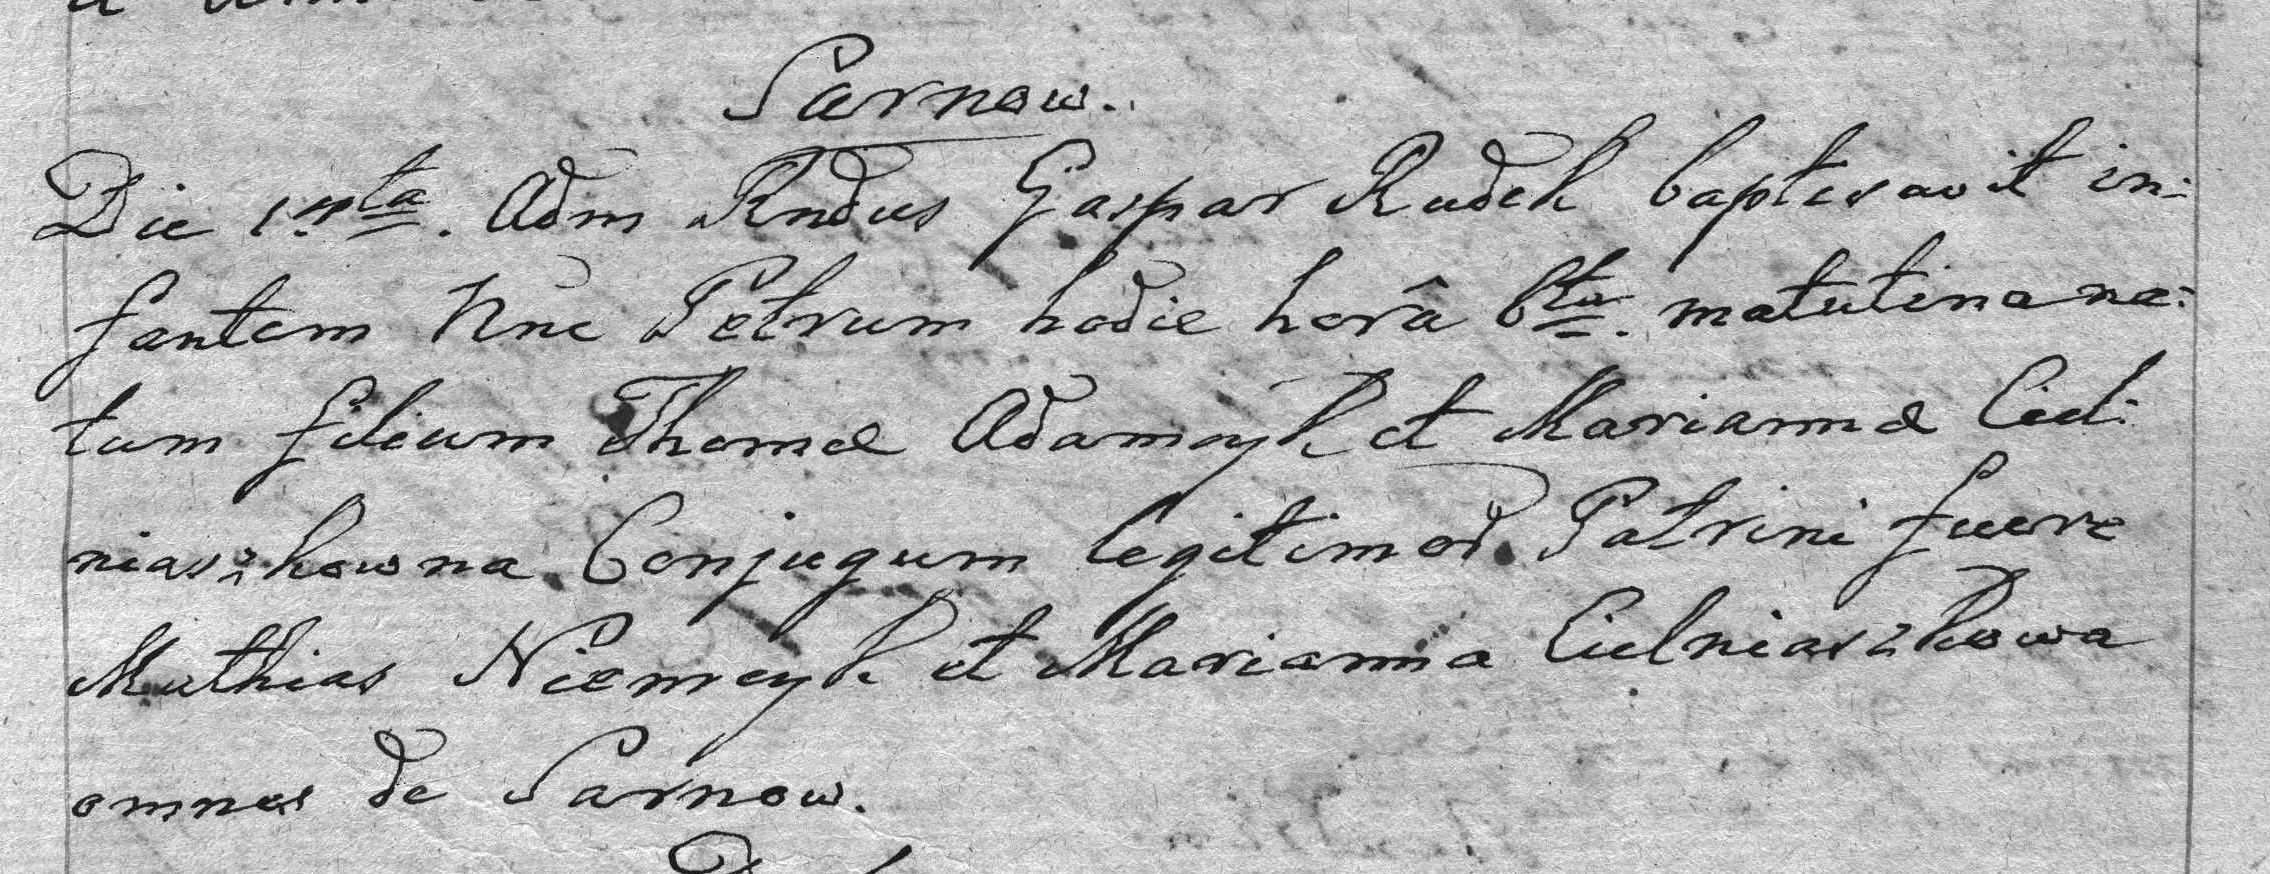 Sarnow.
Die 1ma. Adm Rndus Gaspar Rudek baptisavit in:
fantem Nne Petrum hodie horâ 6ta. matutina na:
tum filium Thomæ Adamczyk et Mariannæ Ciel:
niaszkowna Conjugum legitimor. Patrini fuere
Mathias Niemczyk et Marianna Cielniaszkowa
omnes de Sarnow.